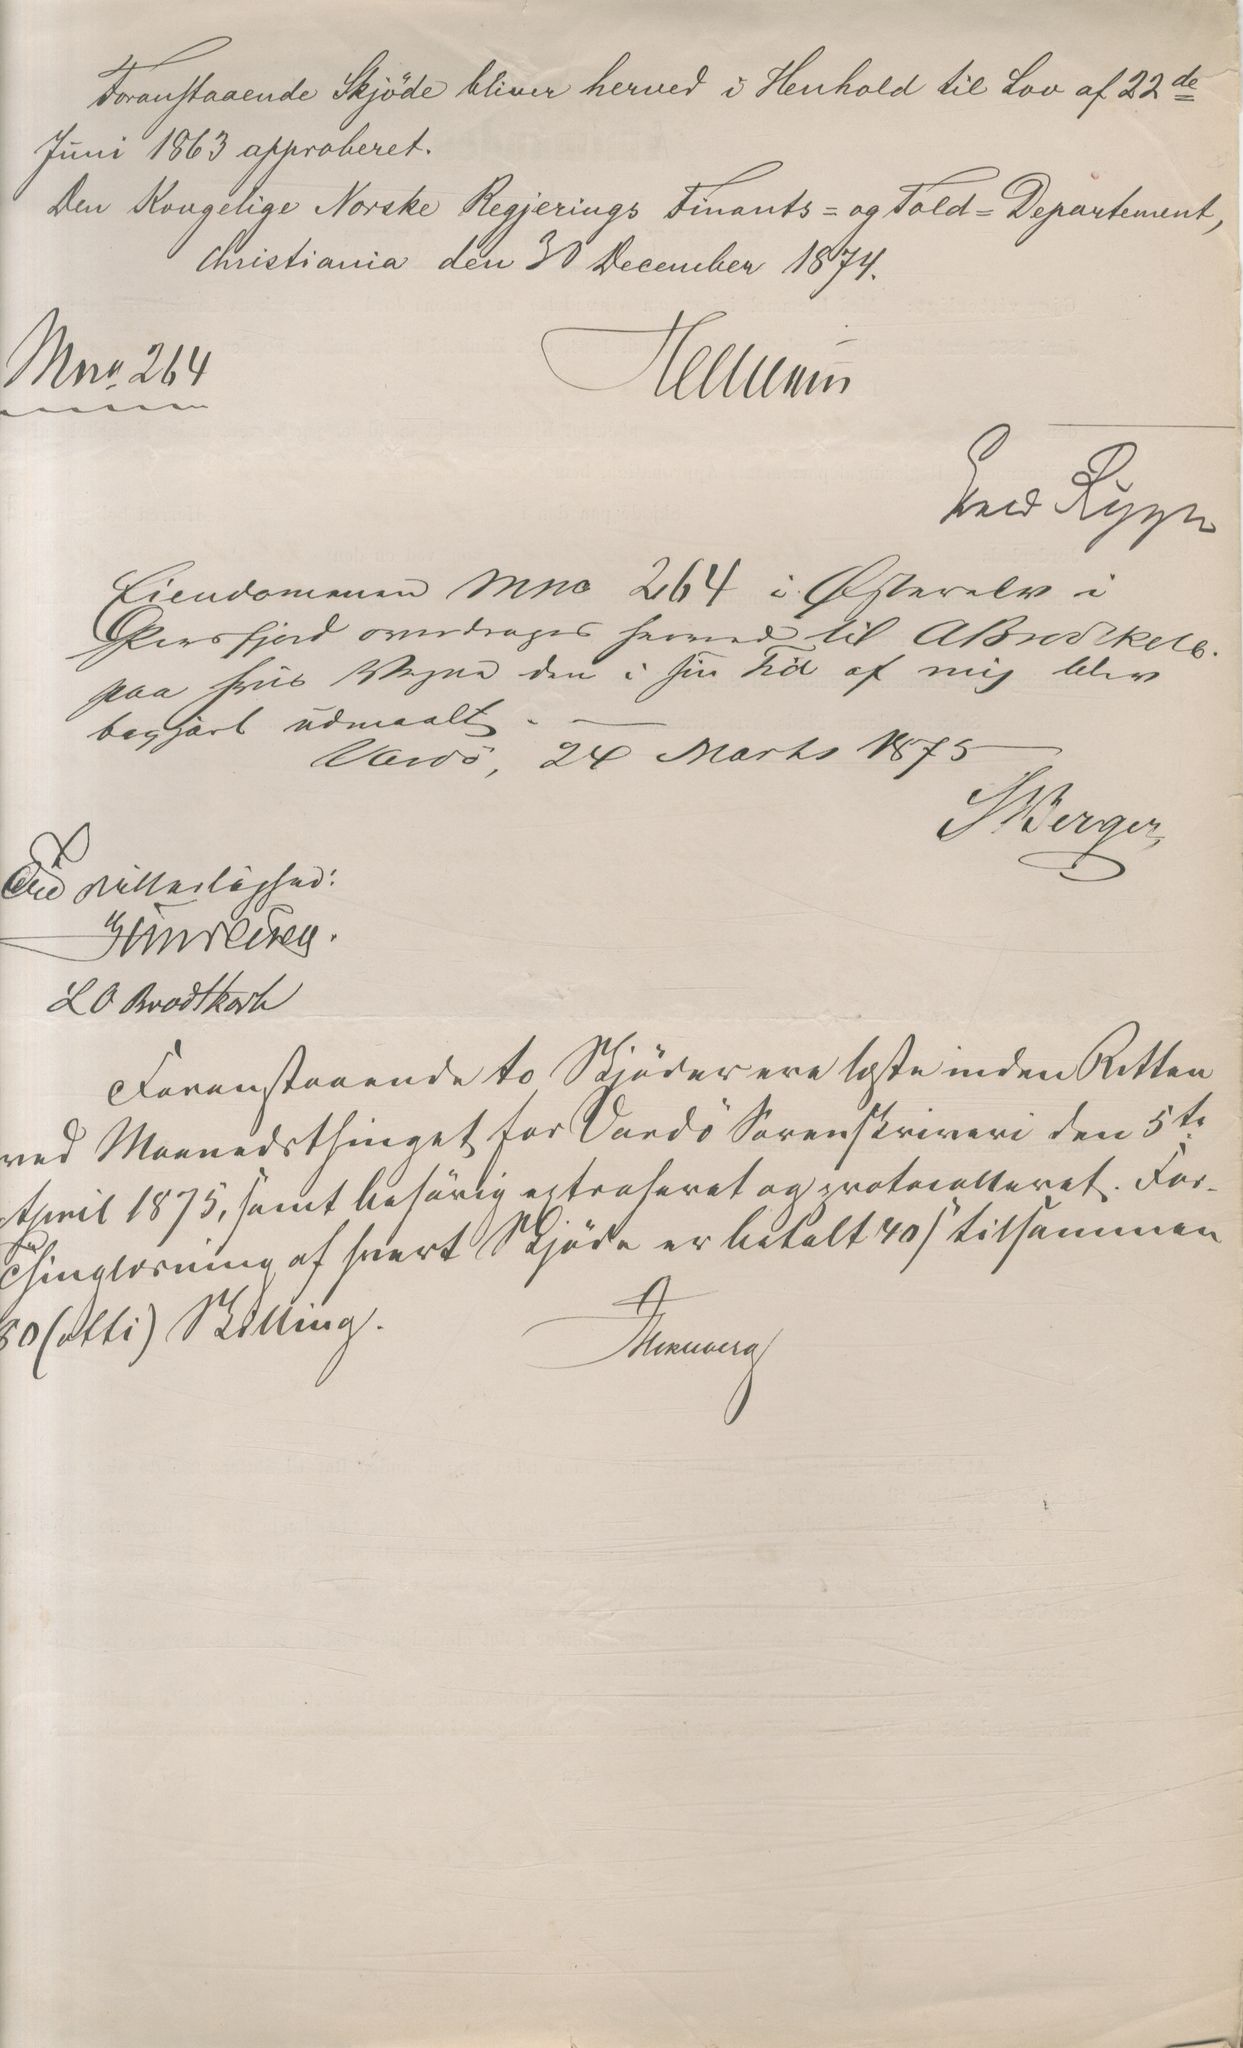 Foranstaaende Skjöde bliver herved i Henhold til Lov af 22de
Juni 1863 approberet.
Den Kongelige Norske Regjerings Finants= og Told=Departement,
Christiania den 30 December 1874.
Mno. 264
Helliesen
Evald Rygh
Eiendommen Mno 264 i Østerelv i
Persfjord overdrages herved til A Brodtkorb
paa hvis Vegne den i sin Tid af mig blev
begjært udmaalt. —
Vardö, 24 Marts 1875
Berger
Til Vitterlighed:
L O Brodtkorb
Foranstaaende to Skjöder ere læste inden Retten
ved Maanedsthinget for Vardö Sorenskriveri den 5te
April 1875, samt behörig extraheret og protocolleret. For
Thinglæsning af hvert Skjöde er betalt 40 s tilsammen
80 (otti) Skilling.